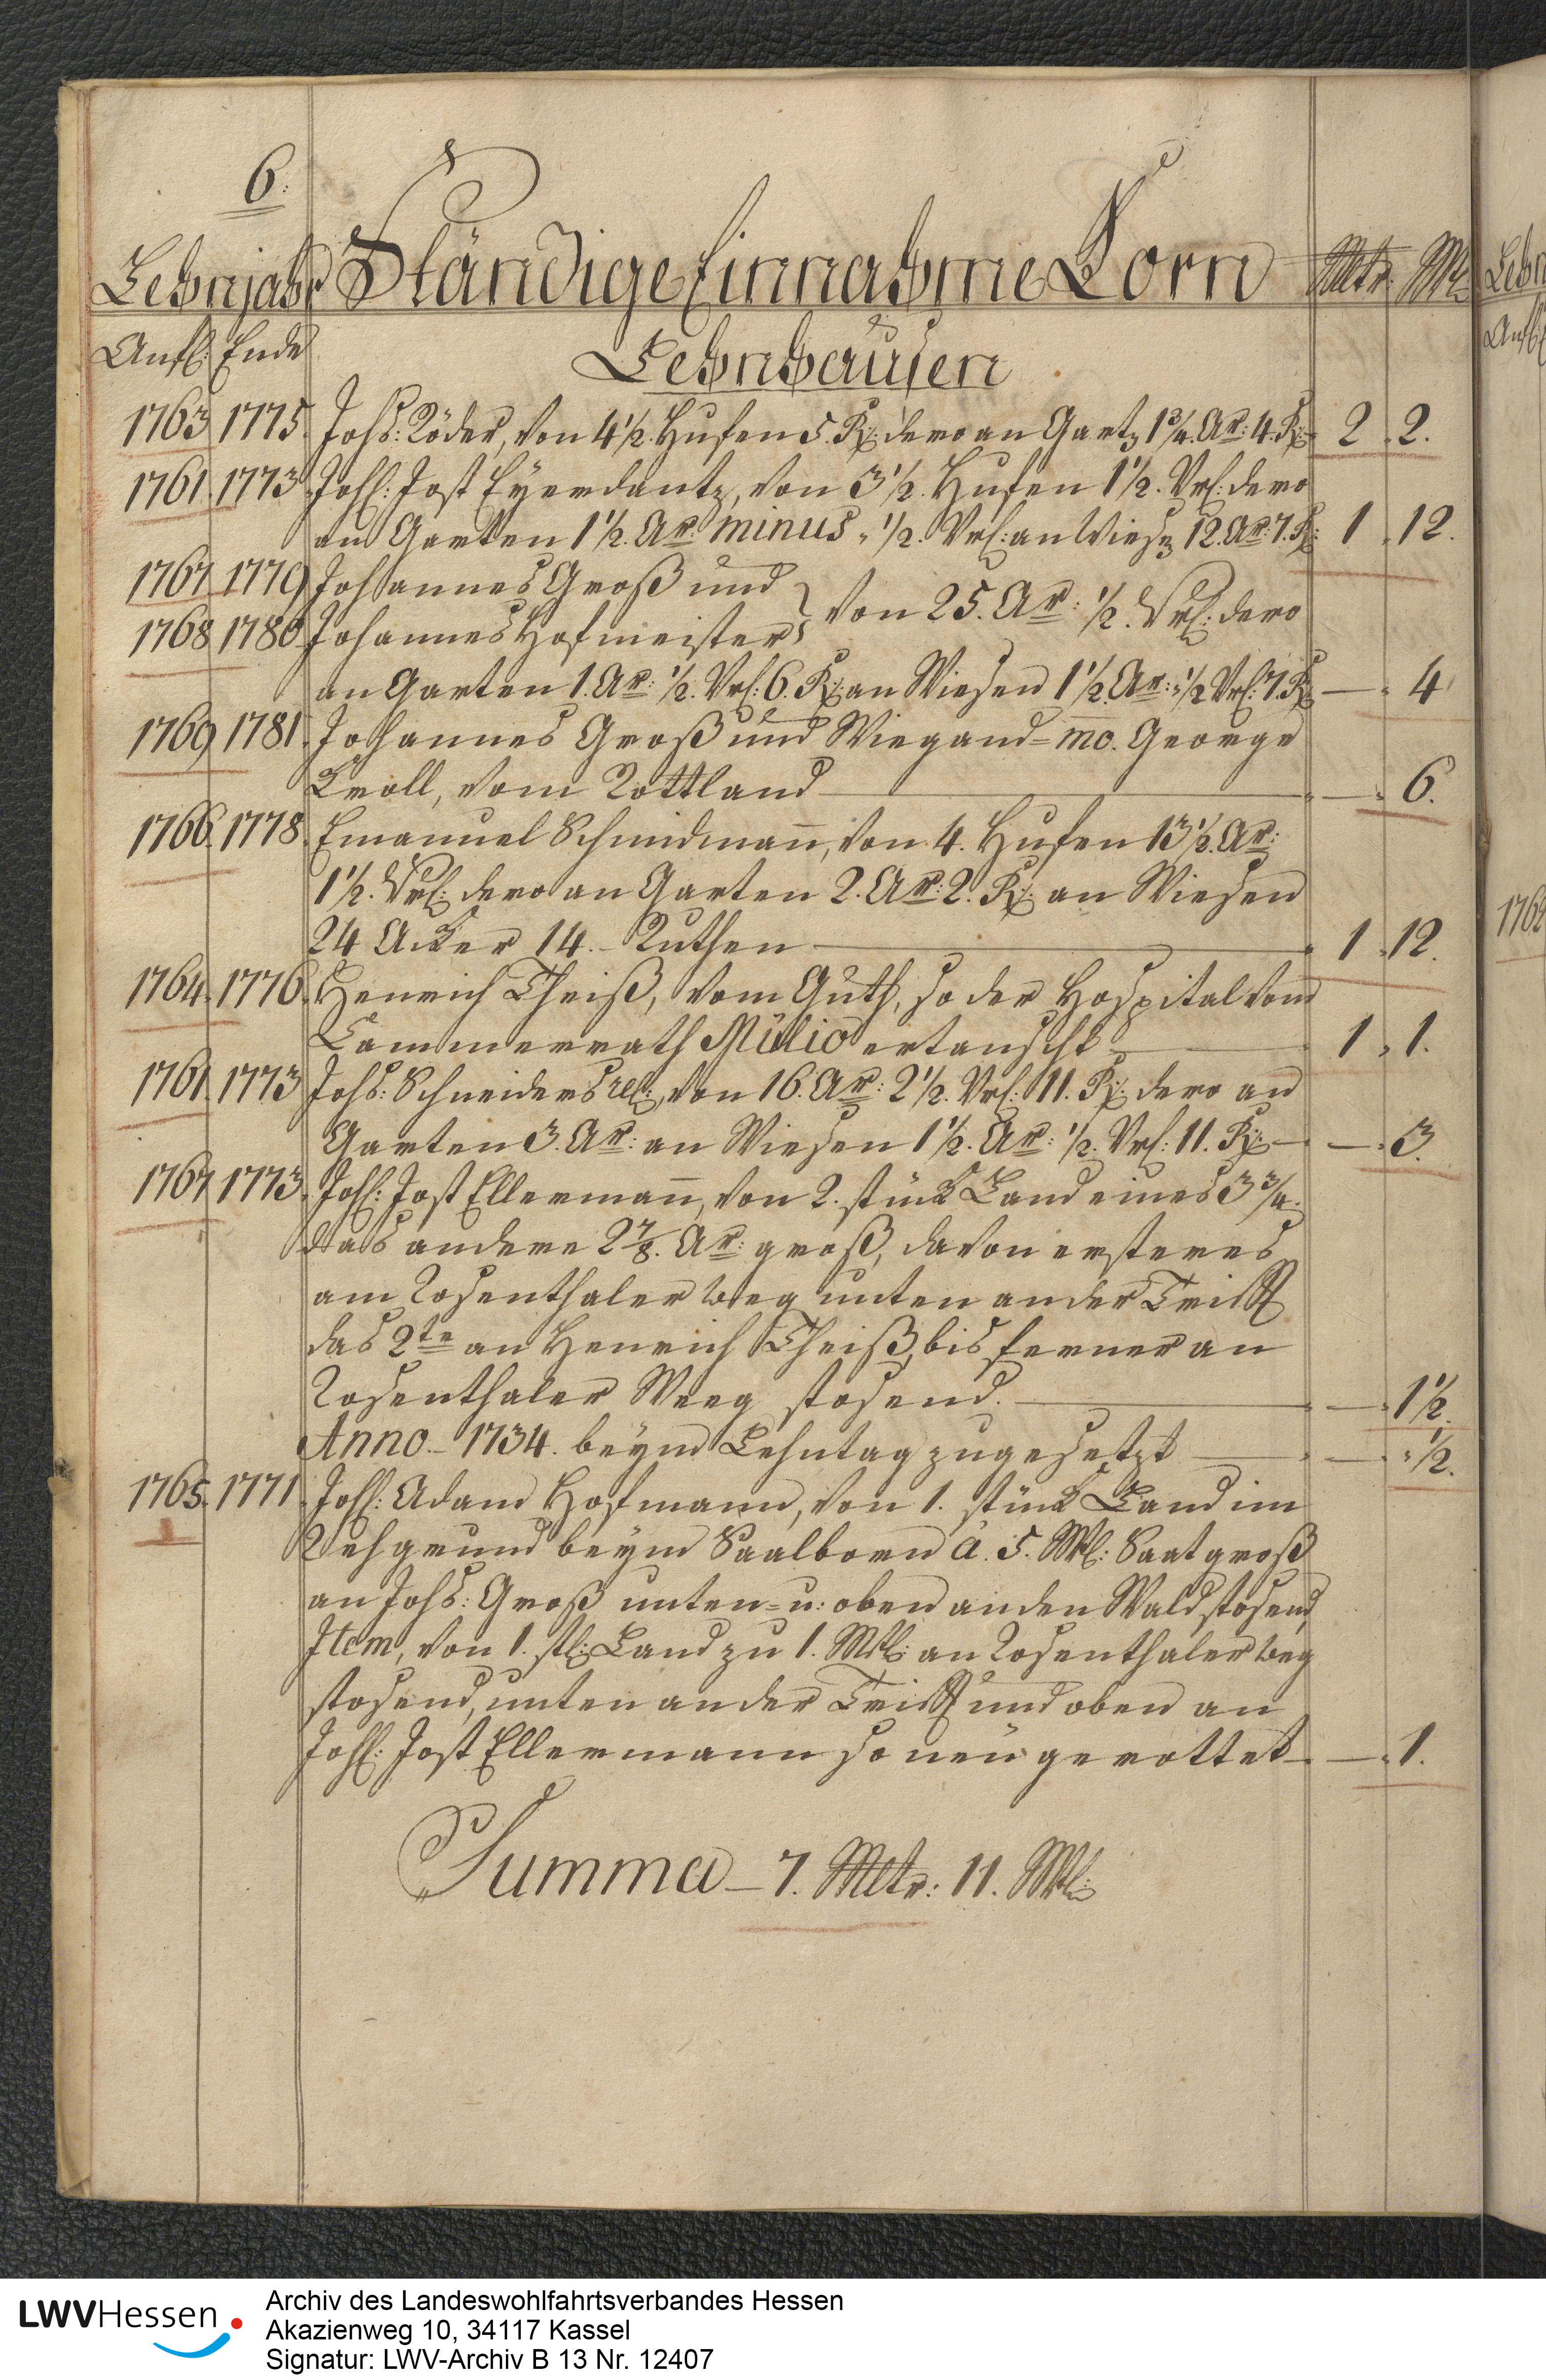 6.
Lehnjahr Ständige Einnahme Korn Mltr. Ml.
Anf: Ende
Lehnhausen
1763 1775. Johs: Röder, von 4 1/2. Hufen 5. R: dero an Gart 1 3/4. Ar: 4. R: 2 2.
1761 1773 Joh: Jost Eyerdantz, von 3 1/2. Hufen 1 1/2. Vrl: dero
an Garten 1 1/2. Ar. minus 1/2. Vrl: an Wiesen 12. Ar: 7. R: 1 12.
1767 1779 Johannes Groß und
1768 1780. Johannes Hofmeister von 25. Ar: 1/2. Vrl: dero
an Garten 1. Ar: 1/2. Vrl: 6. R: an Wiesen 1 1/2. Ar: 1/2 Vrl: 7. R — 4
1769 1781. Johannes Groß und Wiegand = mo. George
Kroll, vom Rottland — 6.
1766. 1778. Emanuel Schmidmann, von 4. Hufen 13 1/2. Ar:
1 1/2. Vrl: dero an Garten 2. Ar: 2. R: an Wiesen
24 Acker 14. Ruthen 1 12.
1764. 1776. Henrich Theiß, vom Guth, so der Hospital vom
Cammerrath Mülio ertauscht 1 1.
1761. 1773 Johs: Schneiders rel:, von 16. Ar: 2 1/2. Vrl: 11. R: dero an
Garten 3. Ar: an Wiesen 1 1/2. Ar: 1/2. Vrl: 11. R: — 3.
1767 1773. Joh: Jost Ellermann, von 2. stück Land eines 3 3/4.
das andere 2 7/8. Ar: groß, davon ersteres
am Rosenthaler Weg unten an der Trifft
das 2te an Henrich Theiß, bis ferner an
Rosenthaler Weeg stosend. — 1 1/2.
Anno 1734. beym Lehntag zugesetzt — 1/2.
1765. 1771. Joh: Adam Hofmann, von 1. stück Land im
grund beym Saalborn á. 5. Ml: Saat groß
an Johs: Groß unten = u: oben an den Wald stosend,
Item, von 1. st: Land zu 1. Ml: an Rosenthaler Weg
stosend, unten an der Trifft und oben an
Joh: Jost Ellermann so neü gerottet — 1.
Summa — 7. Mltr: 11. Ml:
LWVHessen
Archiv des Landeswohlfahrtsverbandes Hessen
Akazienweg 10, 34117 Kassel
Signatur: LWV-Archiv B 13 Nr. 12407